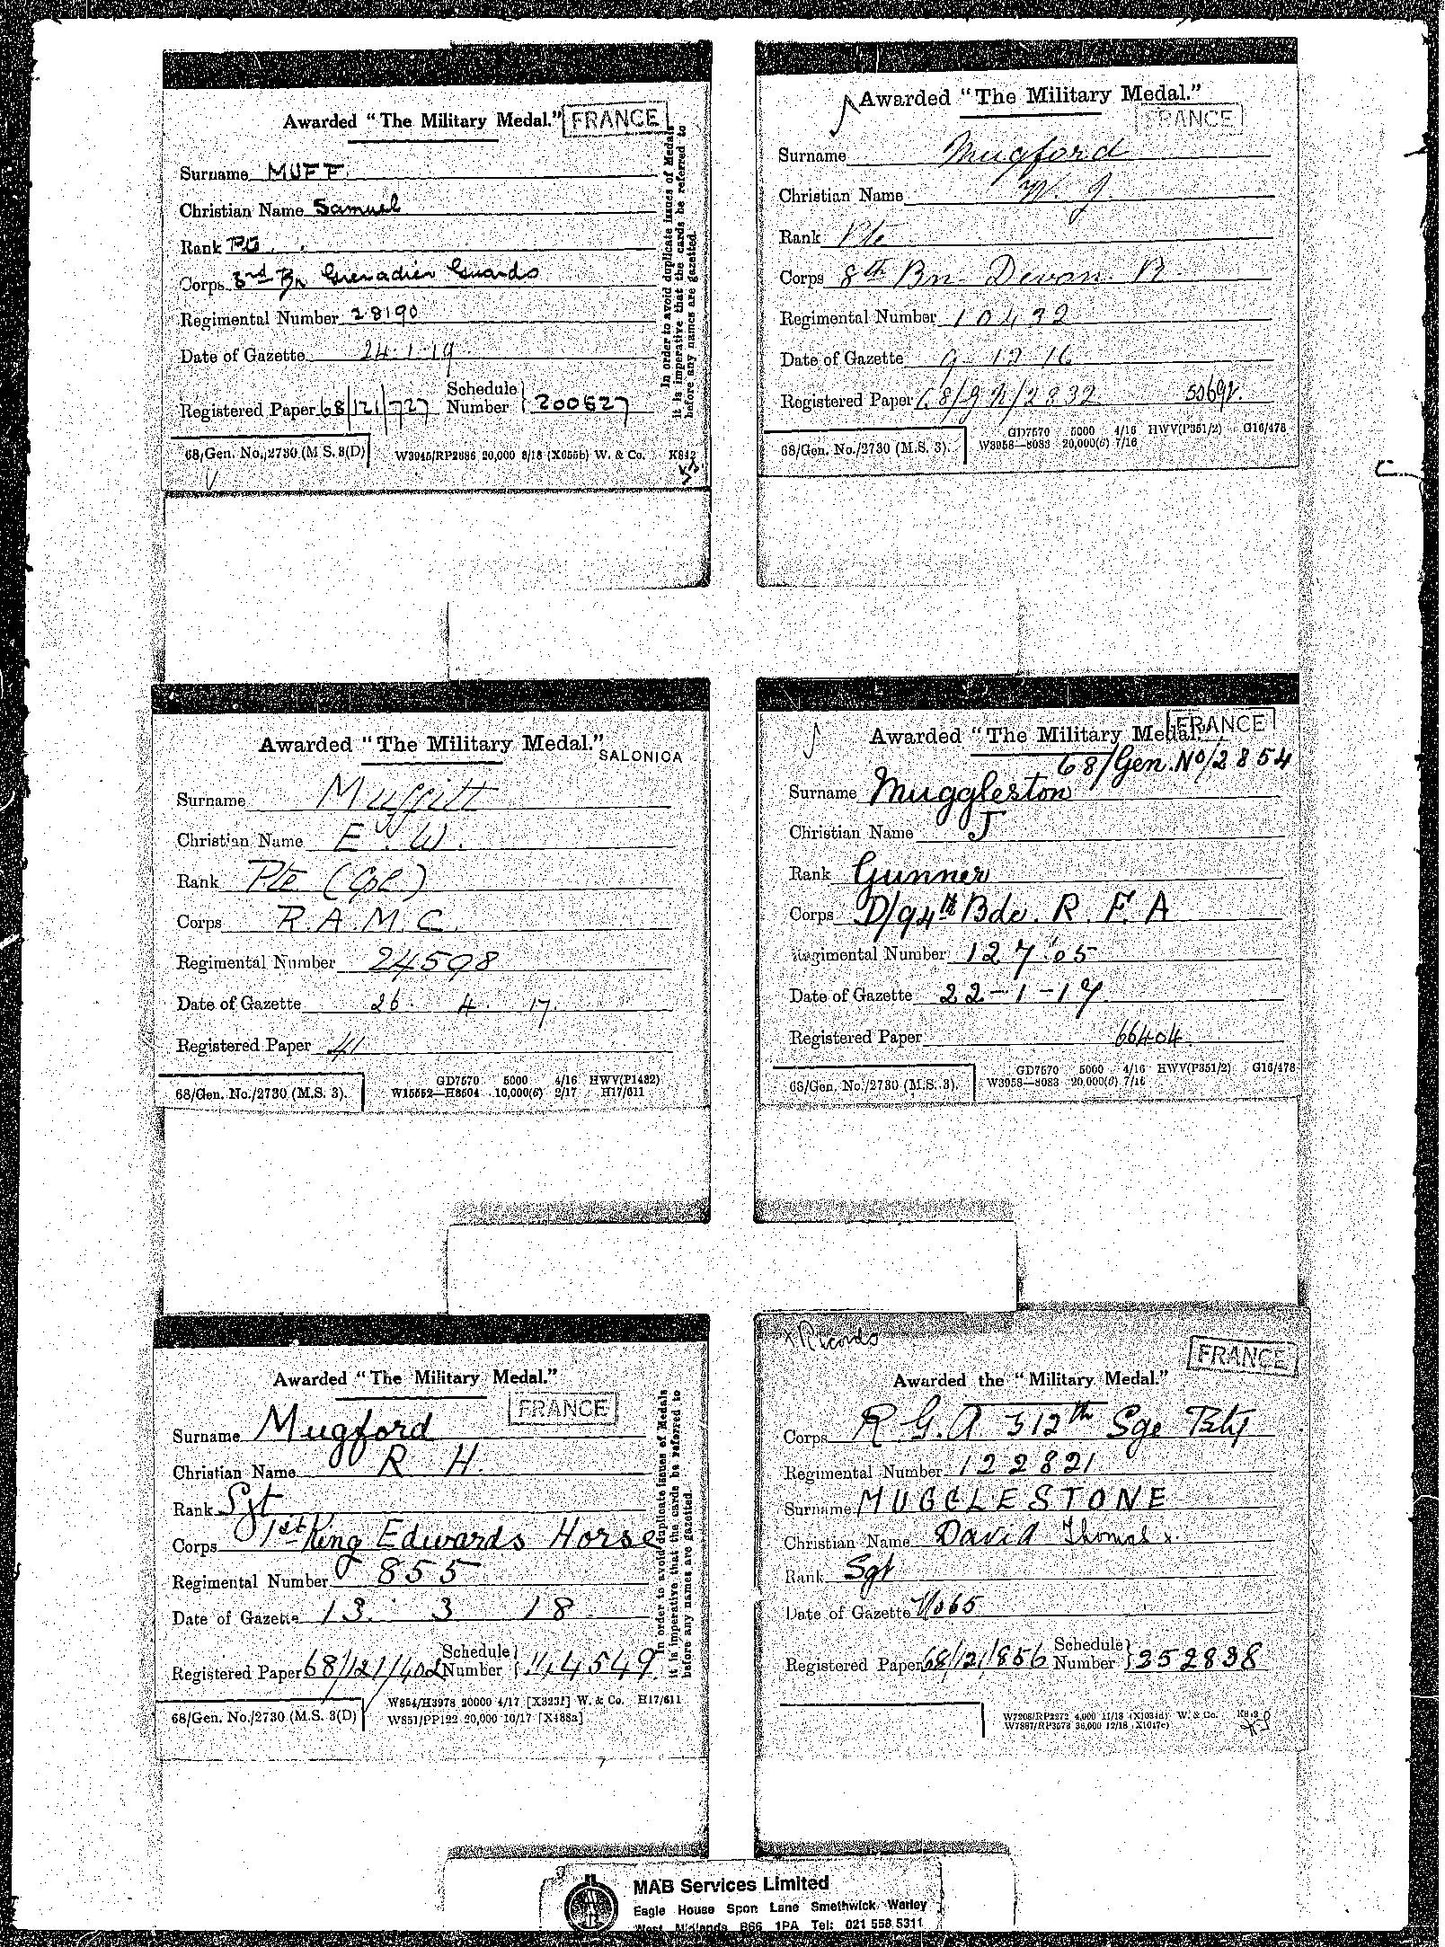 Awarded "The Military Medal." FRANCE
Surname MUFF
Christian Name Samuel
Rank
Corps 3rd Bn Grenadier Guards
Regimental Number 28190
Date of Gazette 24.1.19
Registered Paper 68/121/727 Schedule Number 200627
68/Gen. No./2730 (M.S. 3(D) W3945/RP2686 20,000 8/18 (X655b) W. & Co. K812
In order to avoid duplicate issues of Medals
it is imperative that the cards be referred to
before any names are gazetted.
Awarded "The Military Medal."
FRANCE
Surname Mugford
Christian Name W. J.
Rank Pte
Corps 8th Bn Devon R.
Regimental Number 10432
Date of Gazette 9 12 16
Registered Paper 68/92/2832
68/Gen. No./2730 (M.S. 3). GD7570 5000 4/16 HWV(P351/2) G16/478
W3958—8083 20,000(6) 7/16
Awarded "The Military Medal."
SALONICA
Surname Muffitt
Christian Name E. W.
Rank Pte (Cpl)
Corps R.A.M.C.
Regimental Number 24598
Date of Gazette 26. 4. 17.
Registered Paper 41
68/Gen. No./2730 (M.S. 3). GD7570 5000 4/16 HWV(P1482)
W15652—H8504 10,000(6) 2/17 H17/611
Awarded "The Military Medal. FRANCE
68/Gen.No/2854
Surname Muggleston
Christian Name J
Rank Gunner
Corps D/94th Bde. R.F.A
Regimental Number 12705
Date of Gazette 22-1-17
Registered Paper 66404
68/Gen. No./2730 (M.S. 3). GD7570 5000 4/16 HWV(P351/2) G16/478
W3958—8083 20,000(6) 7/16
Awarded "The Military Medal."
FRANCE
Surname Mugford
Christian Name R H.
Rank Sgt
Corps 1st King Edwards Horse
Regimental Number 855
Date of Gazette 13. 3 18
Registered Paper 68/121/402 Schedule Number 114549
68/Gen. No./2730 (M.S. 3(D) W854/H3978 20000 4/17 [X323f] W. & Co. H17/611
W851/PP122 20,000 10/17 [X488a]
In order to avoid duplicate issues of Medals
it is imperative that the cards be referred to
before any names are gazetted.
x Records
FRANCE
Awarded the "Military Medal."
Corps R.G.A 312th Sge Bty
Regimental Number 122821
Surname MUGGLESTONE
Christian Name David Thomas x.
Rank Sgt
Date of Gazette
Registered Paper 68/121/856 Schedule Number 352838
W7208/RP2272 4,000 11/18 (X1034d) W. & Co.
W7887/RP3573 36,000 12/18 X1047c)
MAB Services Limited
Eagle House Spon Lane Smethwick Warley
West Midlands B66 1PA Tel: 021 558 5311